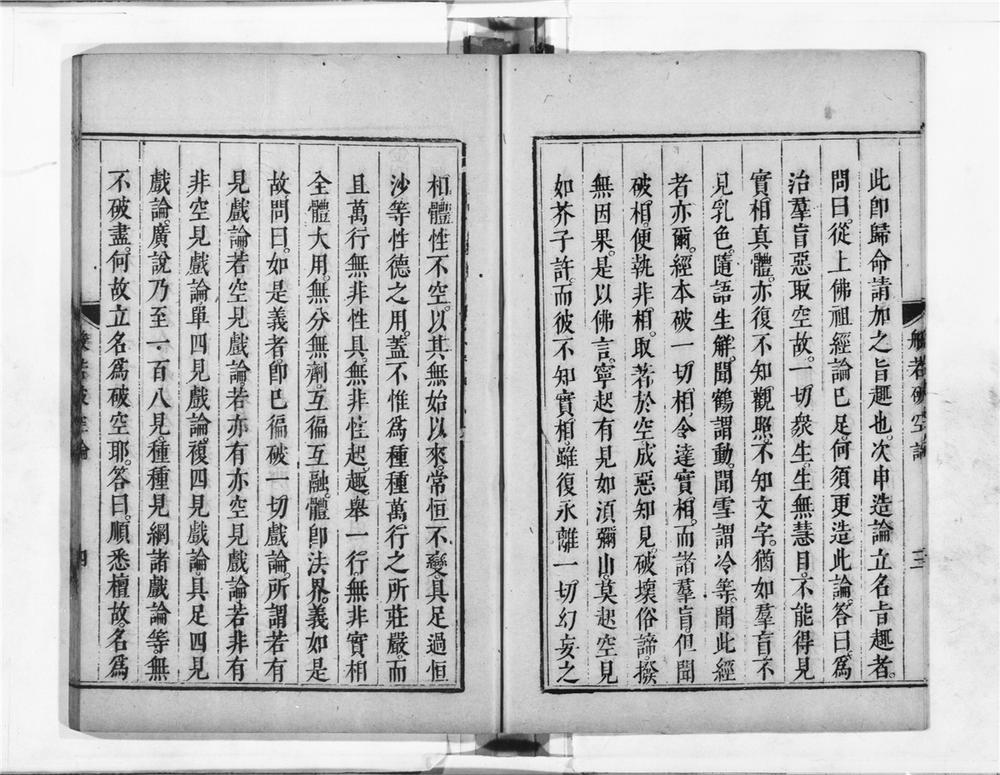 此卽歸命請加之旨趣也。次申造論立名旨趣者。
問曰。從上佛祖經論已足。何須更造此論。答曰。爲
治羣盲惡取空故。一切衆生。生無慧目。不能得見
實相眞體。亦復不知觀照。不知文字。猶如羣盲不
見乳色。隨語生解。聞鶴謂動。聞雪謂冷等。聞此經
者亦爾。經本破一切相。令達實相。而諸羣盲但聞
破相。便執非相。取著於空。成惡知見。破壞俗諦。撥
無因果。是以佛言。寧起有見如須彌山。莫起空見
如芥子許。而彼不知實相。雖復永離一切幻妄之
般若破空論 三
相。體性不空。以其無始以來。常恒不變。具足過恒
沙等性德之用。蓋不惟爲種種萬行之所莊嚴。而
且萬行無非性具。無非性起。趣舉一行。無非實相
全體大用。無分無劑。互徧互融。體卽法界。義如是
故問曰。如是義者。卽已徧破一切戲論。所謂若有
見戲論。若空見戲論。若亦有亦空見戲論。若非有
非空見戲論。單四見戲論。複四見戲論。具足四見
戲論。廣說乃至一百八見。種種見網諸戲論等。無
不破盡。何故立名爲破空耶。答曰。順悉檀故。名爲
般若破空論 四